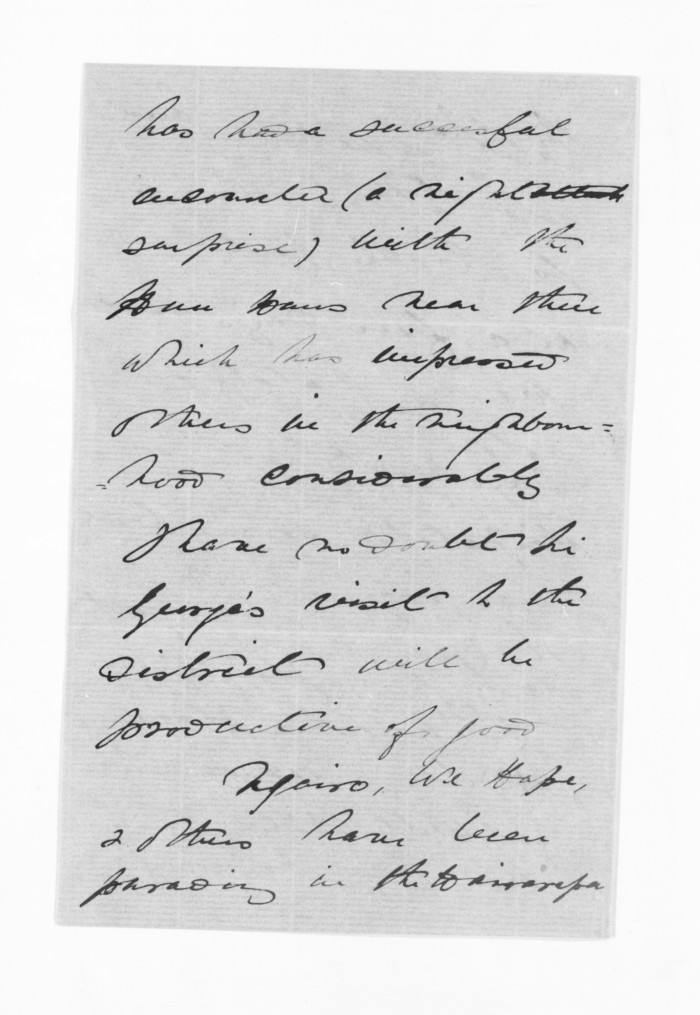 has had a successful
encounter (a night
surprise) with the
Hau Haus near there
which has impressed
others in the neighbour=
=hood considerably
I have no doubt Sir
George's visit to the
district will be
productive of good
Ngairo, Wi Hape,
& others have been
parading in the Wairarapa